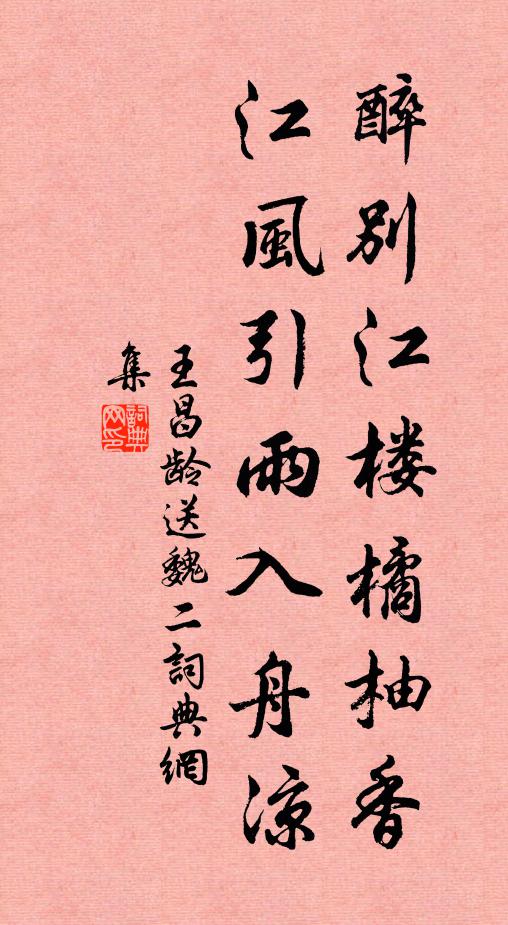 醉别江楼橘柚香
江風引雨入舟涼
王昌龄送魏二詞典網
集
詞典网印